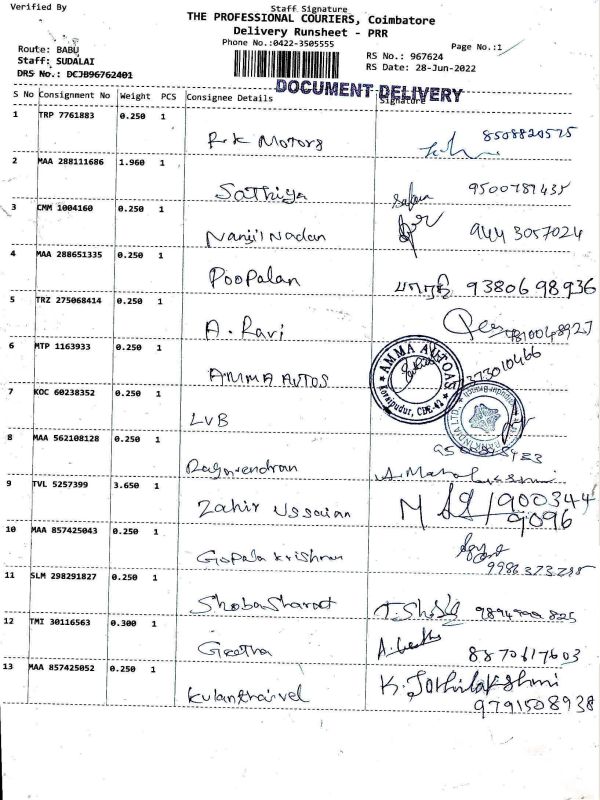 Verified By
Staff Signature
THE PROFESSIONAL COURIERS, Coimbatore
Delivery Runsheet - PRR
Phone No.:0422-3505555
Page No.:1
Route: BABU
Staff: SUDALAI
DRS No.: DCJB96762401
RS No.: 967624
RS Date: 28-Jun-2022
DOCUMENT DELIVERY
S No Consignment No Weight PCS Consignee Details Signature
1 TRP 7761883 0.250 1
R.K Motors 8508820575
2 MAA 288111686 1.960 1
Sathiya 9500787435
3 CMM 1004160 0.250 1
Nanjil Nadan 944 3057024
4 MAA 288651335 0.250 1
Poopalan 9380698936
5 TRZ 275068414 0.250 1
A. Ravi
6 MTP 1163933 0.250 1
AMMA AUTOS
AMMA AUTOAS
7 KOC 60238352 0.250 1
LVB
BANK INDIA LTD.
8 MAA 562108128 0.250 1
9 TVL 5257399 3.650 1
Zahir Ussaian 900344
9096
10 MAA 857425043 0.250 1
Gopala krishnan
11 SLM 298291827 0.250 1
Shoba Sharat
12 TMI 30116563 0.300 1
Geetha A. Geetha 8870617603
13 MAA 857425052 0.250 1
Kulanthaivel K. Jothilakshmi
9791508938